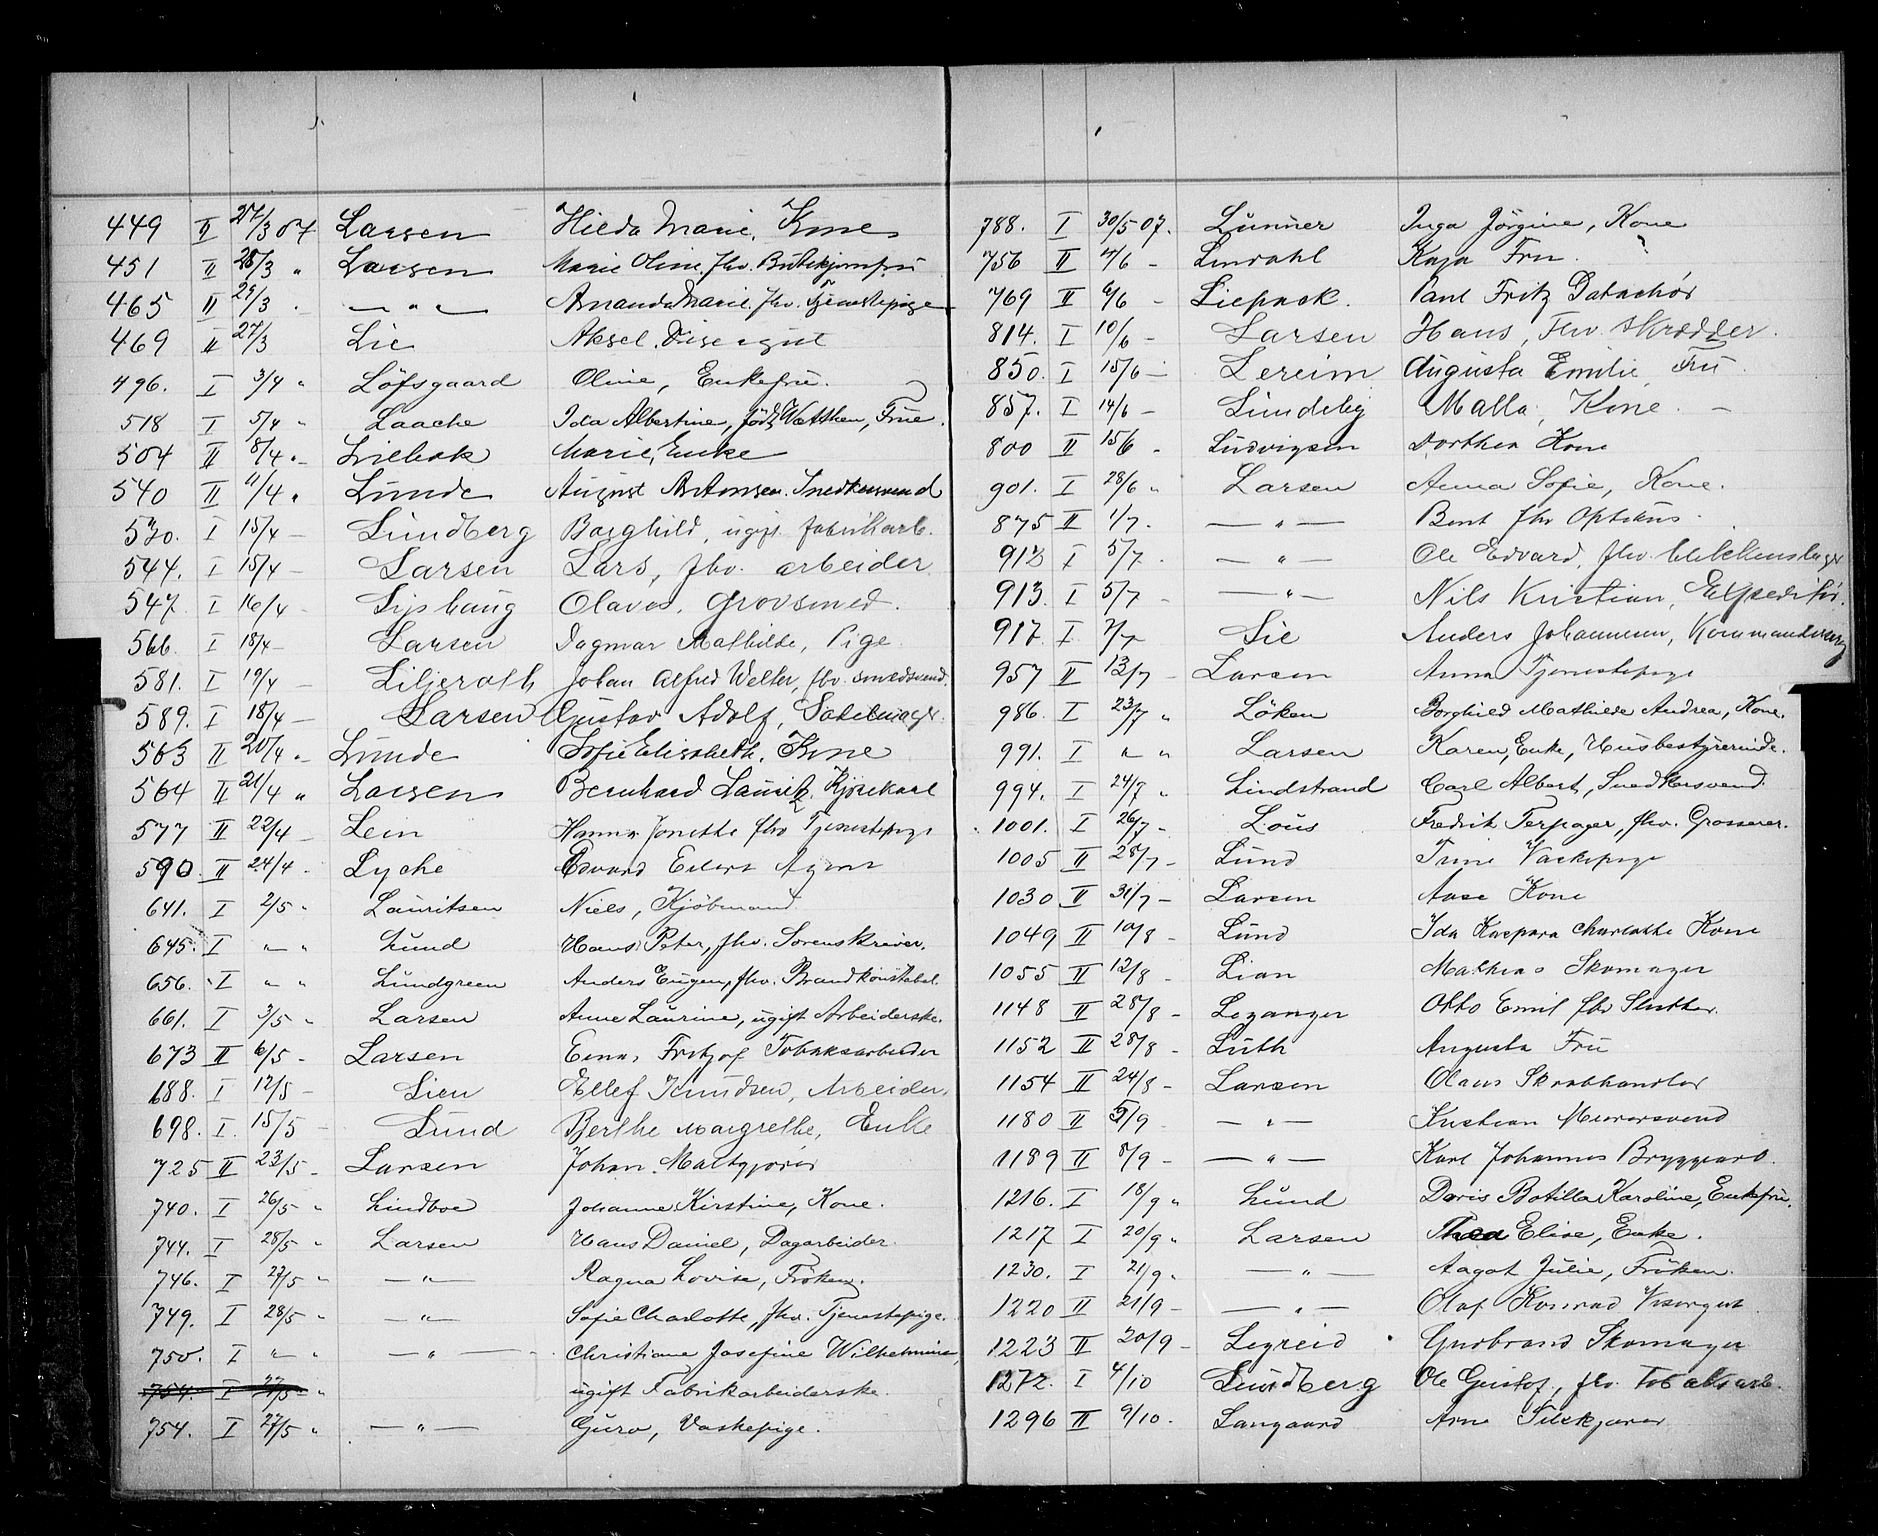 449 II 27/3 07 Larsen Hilda Marie, Kone
451 II 28/3 " Larsen Marie Oline, fhv. Butikjomfru
465 II 29/3 " — " — Amanda Marie, fhv. Tjenestepige
469 II 27/3 Lie Aksel, Visergut
496. I 3/4 " Löfsgaard Oline, Enkefru.
518 I 5/4 " Laache Ida Albertine, född Watthen, Frue.
504 II 8/4 " Liebak Marie, Enke
540 II 11/4 " Lunde August Antonsen. Snedkersvend
530. I 15/4 — Lundberg Borghild, ugift fabrikarb.
544. I 15/4 — Larsen Lars, fhv. arbeider
547. I 16/4 — Olaves, Grovsmed.
566. I 18/4 — Larsen Dagmar Mathilde, Pige.
581. I 19/4 — Liljeroth Johan Alfred Welter, fhv. smedsvend.
589. I 18/4 — Larsen Gustav Adolf, Sadelmager.
563 II 20/4 " Lunde Sofie Elisabeth, Kone
564 II 21/4 " Larsen Bernhard Lauritz, Kjörekarl
577 II 22/4 — Lein Hanna Jonette fhv Tjenestepige
590. II 24/4 . Lyche Edvard Eilert Agent
641. I 2/5 " Lauritsen Niels, Kjöbmand.
645. I " " Lund Hans Peter, fhv. Sorenskriver.
656. I " " Lundgreen Anders Eugen, fhv. Brandkonstabel.
661. I 3/5 " Larsen Anne Laurine, ugift Arbeiderske.
673 II 6/5 - Larsen Fritjof Tobaksarbeider
688. I 12/5 — Lien Ellef Knudsen, Arbeider.
698. I. 15/5 — Lund Berthe Margrethe, Enke
725 II 23/5 - Larsen Johan. Maltgjører
740. I 26/5 " Lindboe Johanne Kirstine, Kone.
744. I 28/5 " Larsen Hans Daniel, Dagarbeider.
746. I 27/5 " — " — Ragna Lovise, Fröken.
749. I 28/5 " — " — Sofie Charlotte, fhv. Tjenestepige.
750. I " " — " — Christiane Josefine Wilhelmine,
754. I 27/5 " ugift Fabrikarbeiderske.
754. I 27/5 " — " — Guro, Vaskepige.
788. I 30/5 07. Lunner Inga Jörgine, Kone
756 II 4/6 - Lindahl Kaja Fru.
769 II 6/6 - Liepack. Paul Fritz
814. I 10/6 - Larsen Hans, Fhv. Skrædder.
850. I 15/6 — Lereim Augusta Emilie, Fru.
857. I 14/6 — Lundeby Malla, Kone. —
800 II 15/6 - Ludvigsen Dorthea Kone
901. I 28/6 " Larsen Anna Sofie, Kone.
875 II 1/7. — " — Bent fhv Optikus.
912 I 5/7. — " — Ole Edvard, fhv. blikkenslager
913. I 5/7 - — " — Nils Kristian, Expeditör.
917. I 7/7 Lie Anders Johannesen,
957 II 13/7 - Larsen Anna Tjenestepige
986. I 23/7 " Löken Borghild Mathilde Andrea, Kone.
991. I " " Larsen Karen, Enke, Husbestyrerinde.
994. I 24/7 " Lindstrand Carl Albert, Snedkersvend.
1001. I 26/7 - Lous Fredrik Terpager, fhv. Grosserer.
1005 II 28/7 - Lund Trine Vaskepige
1030 II 31/7 - Larsen Aase Kone
1049 II 10/8 - Lund Ida Kaspara Charlotte Kone
1055 II 12/8 - Lian Mathias Skomager
1148 II 28/8 - Leganger Otto Emil fhv Slutter.
1152 II 28/8 - Luth Augusta Fru
1154 II 24/8 - Larsen Olaus Skrabhandler
1180 II 5/9 — " — Kristian Murersvend
1189 II 8/9 - — " — Karl Johannes Bryggearb.
1216. I 18/9 " Lund Doris Botilla Karoline, Enkefru.
1217 I 20/9 " Larsen Thea Elise, Enke.
1230. I 21/9 " — " — Aagot Julie, Fröken.
1220 II 21/9 - — " — Olaf Konrad Visergut
1223 II 20/9 - Legreid Gudbrand Skomager
1272. I 4/10 Lundberg Ole Gustaf, fhv. Tobaksarb.
1296 II 9/10. Langaard Arne